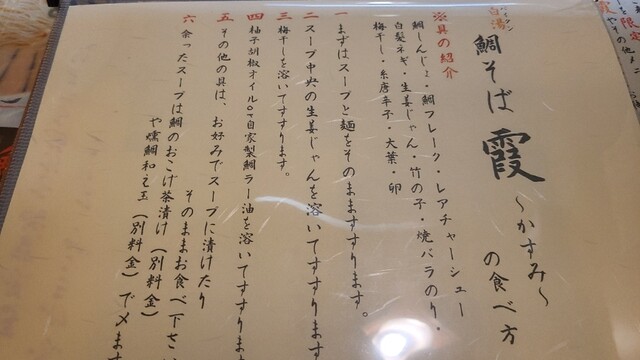 白湯 パイタン
鯛そば 霞 〜かすみ〜 の食べ方
※具の紹介
鯛しんじょ・鯛フレーク・レアチャーシュー
白髪ネギ・生姜じゃん・竹の子・焼バラのり・
梅干し・糸唐辛子・大葉・卵
一 まずはスープと麺をそのまますすります。
二 スープ中央の生姜じゃんを溶いてすすります
三 梅干しを溶いてすすります。
四 柚子胡椒オイルor自家製鯛ラー油を溶いてすすりま
五 その他の具は、お好みでスープに漬けたり
そのままお食べ下さい
六 余ったスープは鯛のおこげ茶漬け(別料金)
や燻鯛和え玉(別料金)で〆ます
限定
その他メニ